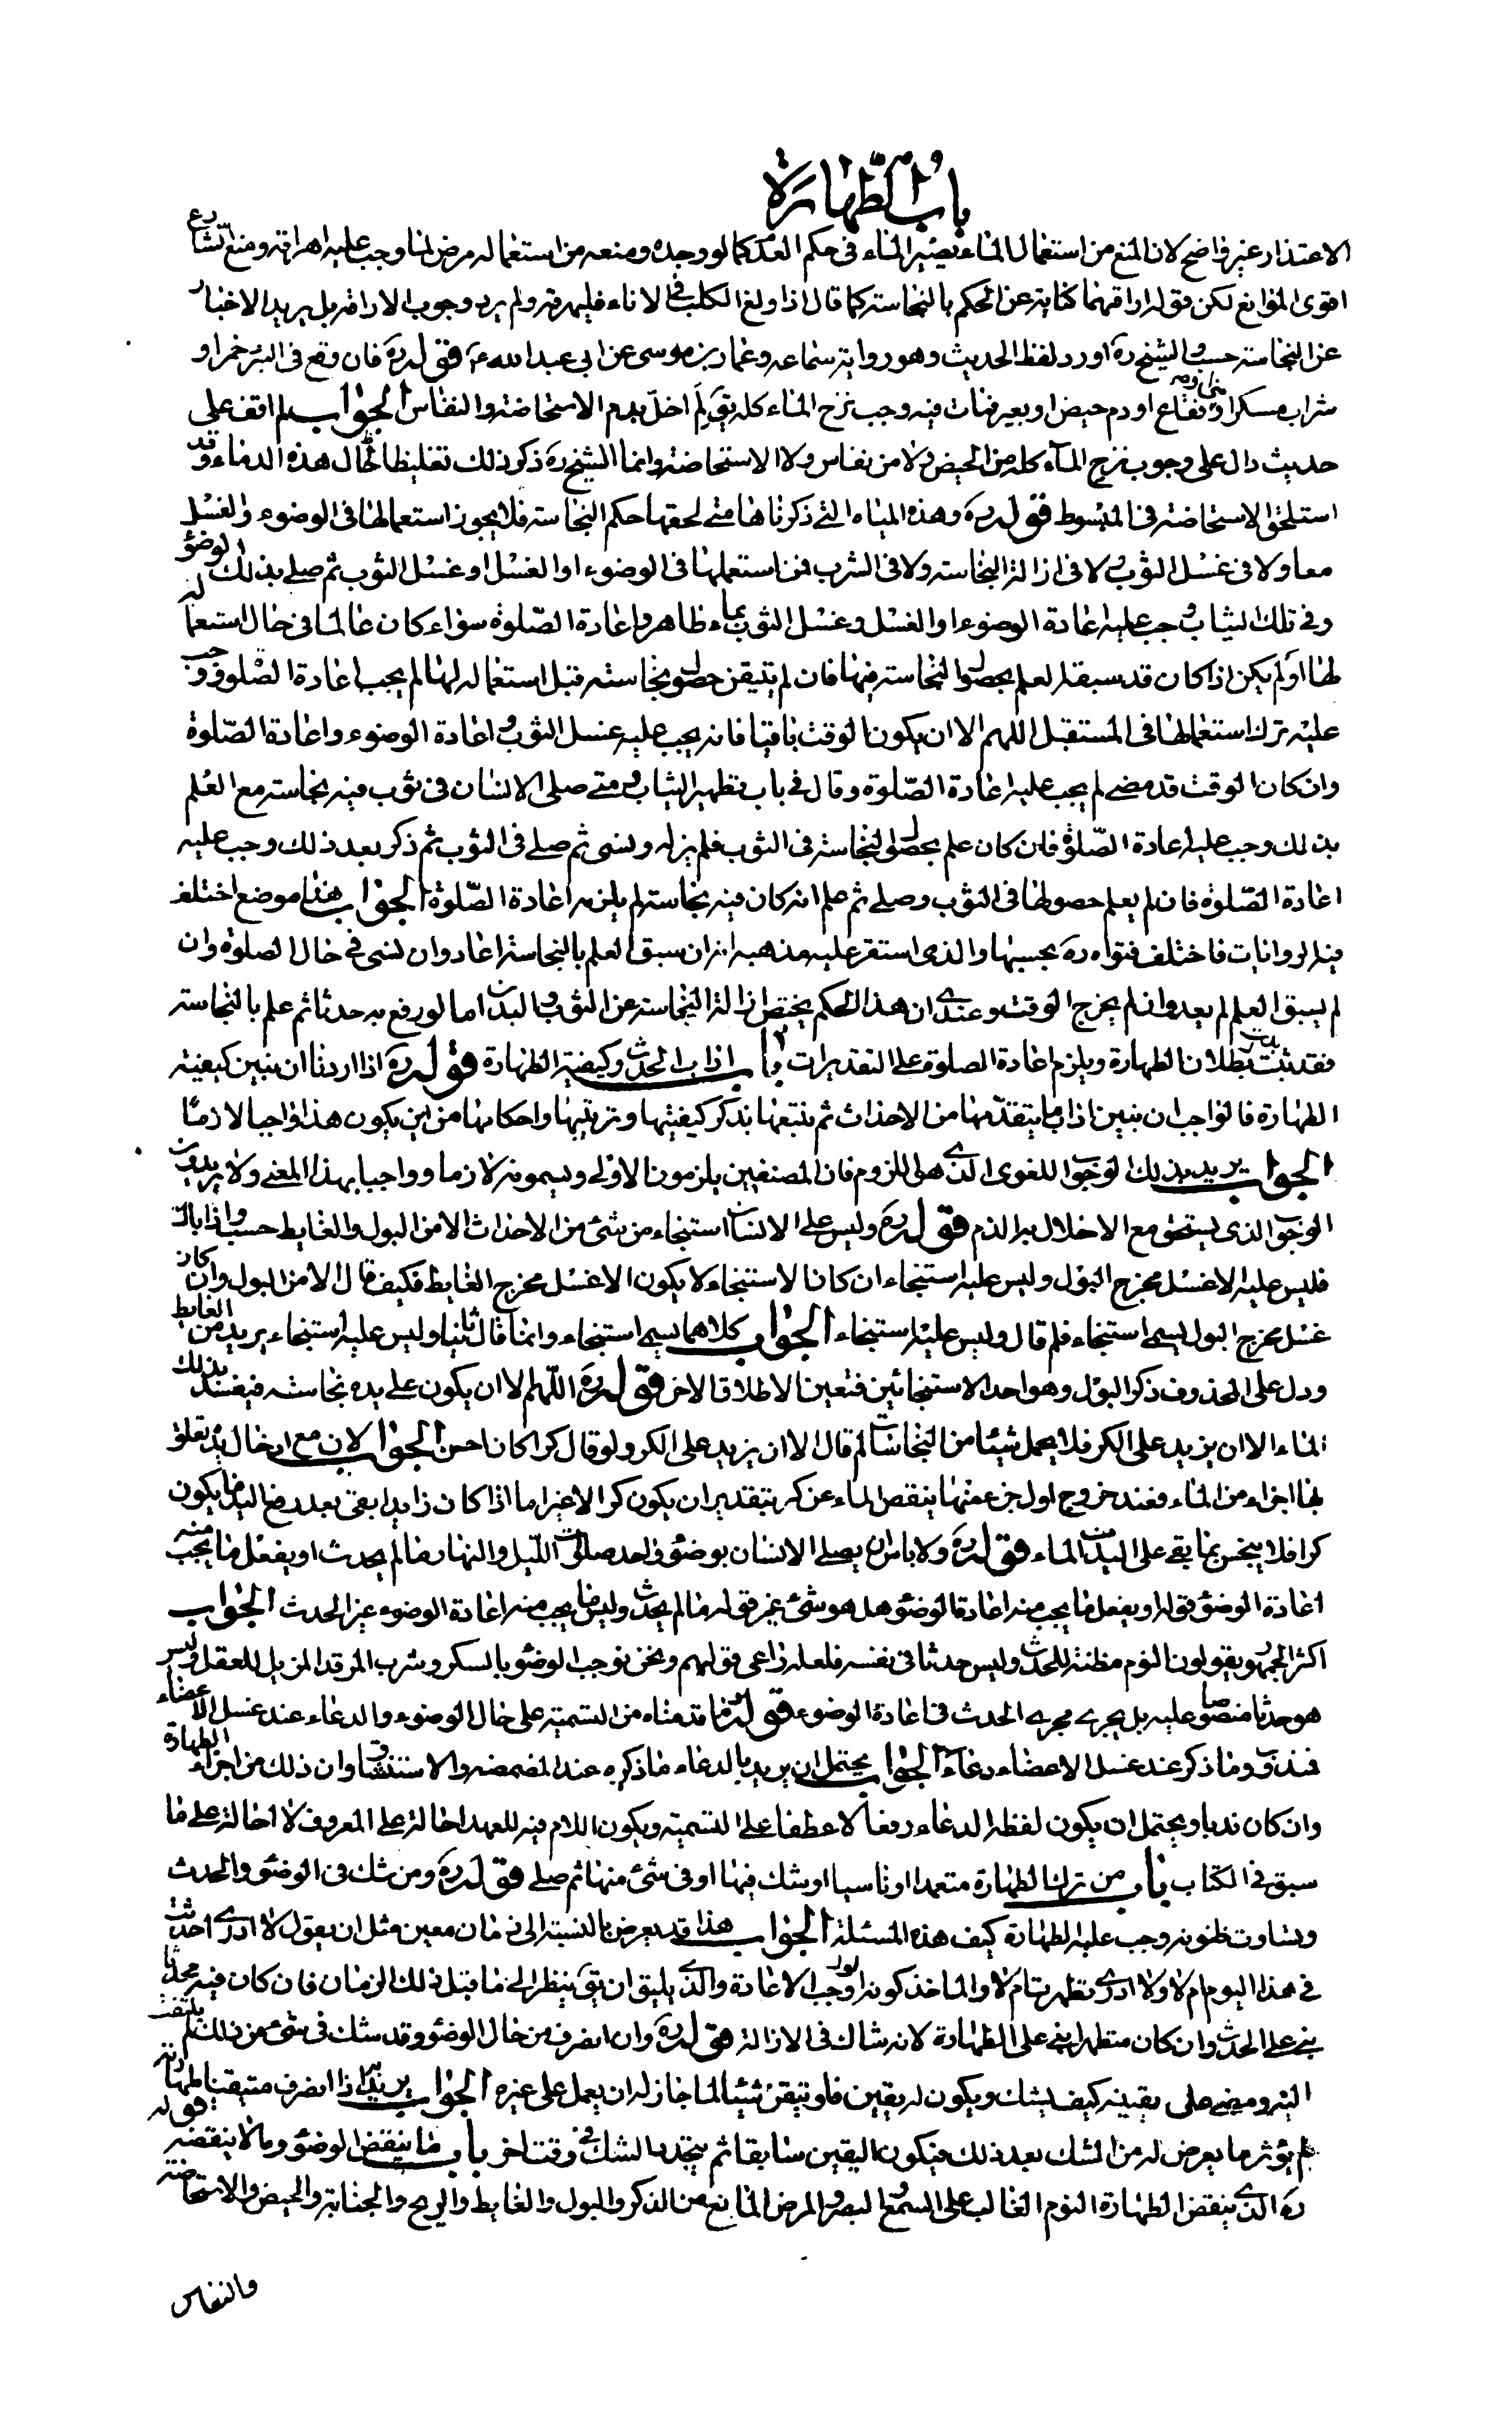 باب الطهارة
الاعتذار غير واضح لان المنع من استعمال الماء يصير الماء فى حكم العدم كما لو وجده ومنعه من استعماله مرض لما وجب عليه اهراقه ومنع الشارع
اقوى الموانع لكن قوله اراقهما كناية عن الحكم بالنجاسة كما قال اذا ولغ الكلب فى الاناء فليهرقه ولم يرد وجوب الاراقة بل يريد الاخبار
عن النجاسة حسب والشيخ ره اورد لفظ الحديث وهو رواية سماعه وعمار بن موسى عن ابى عبد الله ع قوله ره فان وقع فى البئر خمر او
شراب مسكر او فقاع او دم حيض او بعير فمات فيه وجب نزح الماء كله يق لم اخل بدم الاستحاضة والنفاس الجواب لم اقف على
حديث دال على وجوب نزح المآء كله من الحيض ولا من نفاس ولا الاستحاضة وانما الشيخ ره ذكر ذلك تغليظا لحال هذه الدماء وقد
استلحق الاستحاضة فى المبسوط قوله ره وهذه المياه التى ذكرناها متى لحقها حكم النجاسة فلا يجوز استعمالها فى الوضوء والغسل
معا ولا فى غسل الثوب ولا فى ازالة النجاسة ولا فى الشرب فمن استعملها فى الوضوء او الغسل او غسل الثوب ثم صلى بذلك الوضؤ
وفى تلك الثياب وجب عليه اعادة الوضوء او الغسل وغسل الثوب بماء طاهر واعادة الصلوة سواء كان عالما فى حال استعماله
لها او لم يكن اذا كان قد سبقه العلم بحصول النجاسة فيها فان لم يتيقن حصول نجاسته قبل استعماله لها لم يجب اعادة الصلوة ووجب
عليه ترك استعمالها فى المستقبل اللهم الا ان يكون الوقت باقيا فانه يجب عليه غسل الثوب واعادة الوضوء واعادة الصلوة
وان كان الوقت قد مضى لم يجب عليه اعادة الصلوة وقال فى باب تطهير الثياب ومتى صلى الانسان فى ثوب فيه نجاسة مع العلم
بذلك وجب عليه اعادة الصلوة فان كان علم بحصول النجاسة فى الثوب فلم يزله ونسى ثم صلى فى الثوب ثم ذكر بعد ذلك وجب عليه
اعادة الصلوة فان لم يعلم حصولها فى الثوب وصلى ثم علم انه كان فيه نجاسة لم يلزمه اعادة الصلوة الجواب هذا موضع اختلف
فيه الروايات فاختلف فتواه ره بحسبها والذى استقر عليه مذهبه انه ان سبق العلم بالنجاسة اعاد وان نسى فى حال الصلوة وان
لم يسبق العلم لم يعد وان لم يخرج الوقت وعندى ان هذا الحكم يختص ازالة النجاسة عن الثوب والبدن اما لو رفع به حدثا ثم علم بالنجاسة
فقد ثبت بطلان الطهارة ويلزم اعادة الصلوة على التقديرات باب اداب الحدث وكيفية الطهارة قوله ره اذا اردنا ان نبين كيفية
الطهارة فالواجب ان نبين اداب ما يتقدمها من الاحداث ثم نتبعها بذكر كيفيتها وترتيبها واحكامها من اين يكون هذا واجبا لازما
الجواب يريد بذلك الوجوب اللغوى الذى هو اللزوم فان المصنفين يلزمون الاولى ويسمونه لازما وواجبا بهذا المعنى ولا يريدون
الوجوب الذى يستحق مع الاخلال به الذم قوله ره وليس على الانسان استنجاء من شئ من الاحداث الا من البول والغايط حسب واذا بال
فليس عليه الا غسل مخرج البول وليس عليه استنجاء ان كان الاستنجاء لا يكون الا غسل مخرج الغايط فكيف قال الا من البول وان كان
غسل مخرج البول يسمى استنجاء فلم قال وليس عليه استنجاء الجواب كلاهما يسمى استنجاء وانما قال ثانيا وليس عليه استنجاء يريد من الغايط
ودل على المحذوف ذكر البول وهو احد الاستنجائين فتعين الاطلاق الاخر قوله ره اللهم الا ان يكون على يده نجاسة فيفسد بذلك
الماء الا ان يزيد على الكر فلا يحمل شيئا من النجاسات لم قال الا ان يزيد على الكر ولو قال كرا كان احسن الجواب لان مع ادخال يد تعلق
بها اجزاء من الماء فعند خروج اول جزء منها ينقص الماء عن كر بتقدير ان يكون كرا لا غير اما اذا كان زايدا بقى بعد رفع اليد ما يكون
كرا فلا ينجس بما يبقى على اليد من الماء قوله ره ولا باس ان يصلى الانسان بوضؤ واحد صلوات الليل والنهار ما لم يحدث او يفعل ما يجب منه
اعادة الوضؤ قوله او يفعل ما يجب منه اعادة الوضؤ هل هو شئ غير قوله ما لم يحدث وليس ما يجب منه اعادة الوضوء غير الحدث الجواب
اكثر الجمهور يقولون النوم مظنة للحدث وليس حدثا فى نفسه فلعله راعى قولهم ونحن نوجب الوضؤ بالسكر وشرب المرقد المزيل للعقل وليس
هو حدثا منصوصا عليه بل يجرى مجرى الحدث فى اعادة الوضوء قوله وما قدمناه من التسمية على حال الوضوء والدعاء عند غسل الاعضاء
فندب وما ذكر عند غسل الاعضاء دعاء الجواب يحتمل ان يريد بالدعاء ما ذكره عند المضمضة والاستنشاق وان ذلك من اجزاء الطهارة
وان كان ندبا ويحتمل ان يكون لفظه الدعاء رفعا لا عطفا على التسمية ويكون اللام فيه للعهد احالة على المعروف لا احالة على ما
سبق فى الكتاب باب من ترك الطهارة متعمدا او ناسيا او شك فيها او فى شئ منها ثم صلى قوله ره ومن شك فى الوضؤ والحدث
وتساوت ظنونه وجب عليه الطهارة كيف هذه المسئلة الجواب هذا قد يعرض بالنسبة الى زمان معين مثل ان يقول لا ادرى احدثت
فى هذا اليوم ام لا ولا ادرى تطهرت ام لا والماخذ كونه اوجب الاعادة والذى يليق ان يق ينظر الى ما قبل ذلك الزمان فان كان فيه محدثا
بنى على الحدث وان كان متطهرا بنى على الطهارة لانه شاك فى الازالة قوله ره وان انصرف من حال الوضؤ وقد شك فى شئ من ذلك لم يلتفت
اليه ومضى على يقينه كيف يشك ويكون له يقين فلو تيقن شيئا لما جاز له ان يعمل على غيره الجواب يريد اذا انصرف متيقنا لطهارته
لم يؤثر ما يعرض له من الشك بعد ذلك فيكون اليقين سابقا ثم يتجدد الشك فى وقت اخر باب ما ينقض الوضؤ وما لا ينقضه قوله
ره الذى ينقض الطهارة النوم الغالب على السمع والبصر والمرض المانع من الذكر والبول والغايط والريح والجنابة والحيض والاستحاضة
والنفاس